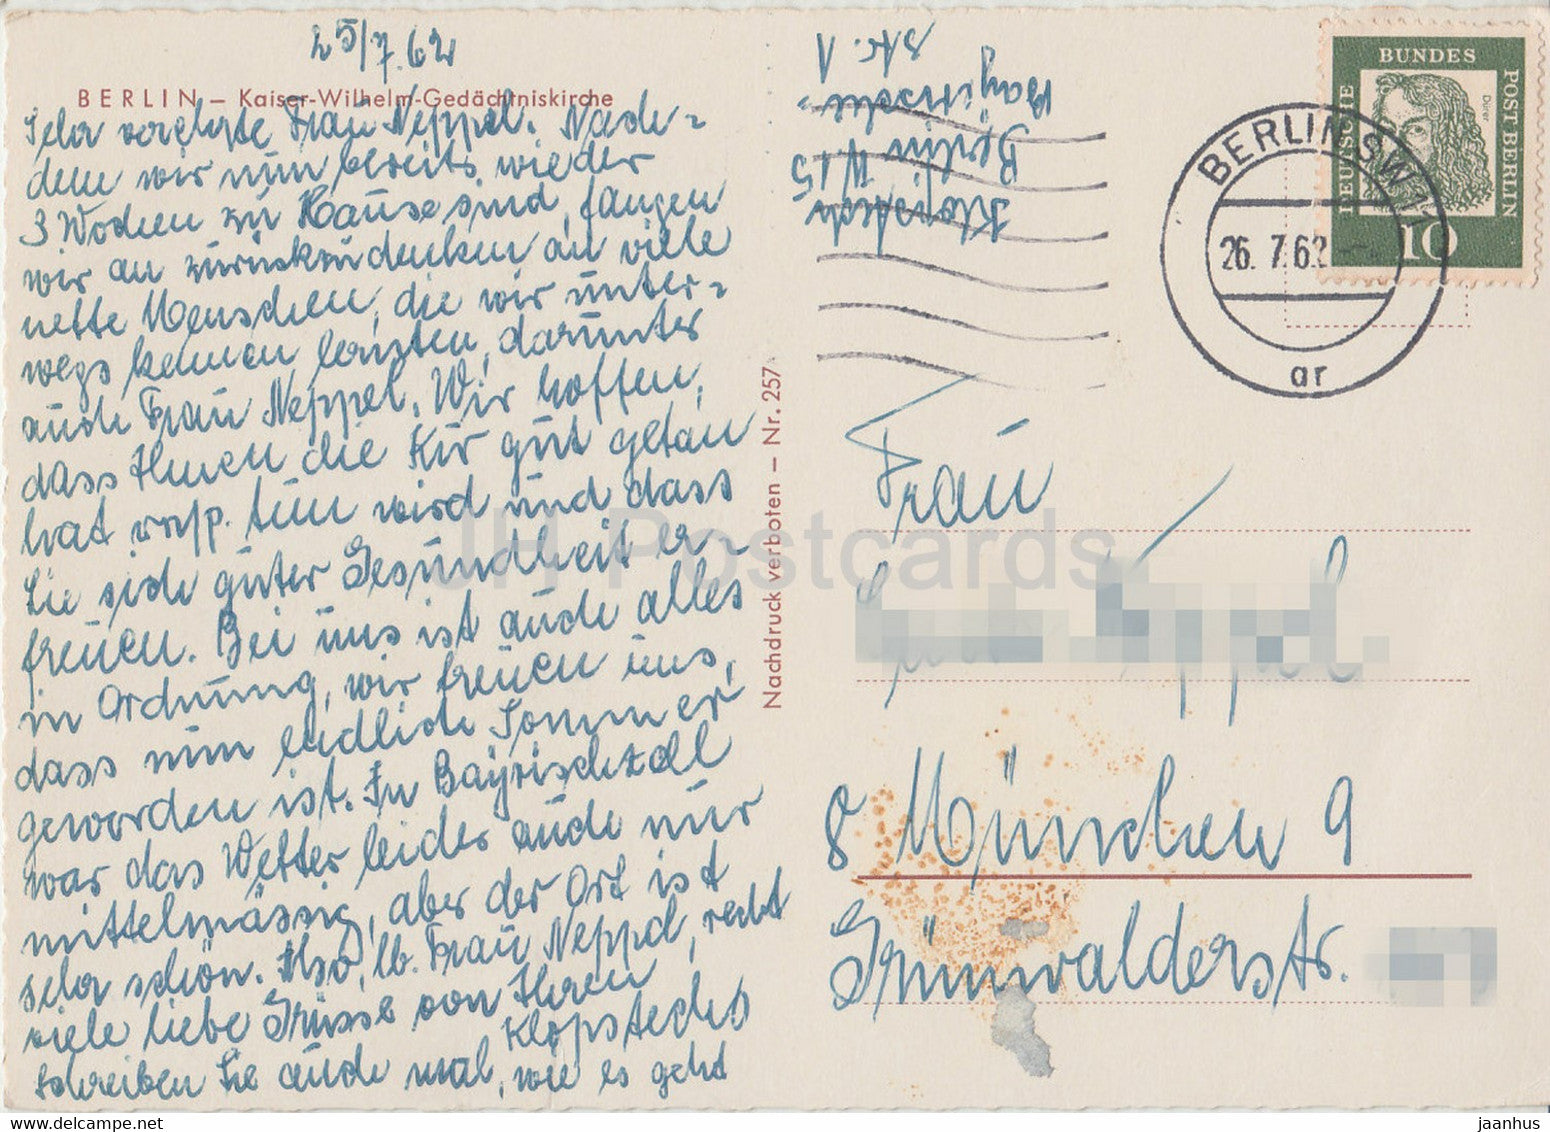 25/7.62
BERLIN – Kaiser-Wilhelm-Gedächtniskirche
Sehr verehrte Frau Neppel. Nach=
dem wir nun bereits wieder
3 Wochen zu Hause sind, fangen
wir an zurückzudenken an viele
nette Menschen, die wir unter=
wegs kennen lernten, darunter
auch Frau Neppel. Wir hoffen,
dass Ihnen die Kur gut getan
hat resp. tun wird und dass
Sie sich guter Gesundheit er-
freuen. Bei uns ist auch alles
in Ordnung, wir freuen uns,
dass nun endlich Sommer
geworden ist. In Bayrischzell
war das Wetter leider auch nur
mittelmässig, aber der Ort ist
sehr schön. Also, lb. Frau Neppel, recht
viele liebe Grüsse von Ihren
Klopstechs
Schreiben Sie auch mal, wie es geht
Nachdruck verboten – Nr. 257
Klopstech
Berlin W15
Bayrische-
str. 1
DEUTSCHE
BUNDES
POST BERLIN
Dürer
10
BERLIN SW11
26.7.62
ar
Frau
8 München 9
Grünwalderstr.
JH Postcards
www.delcampe.net
jaanhus